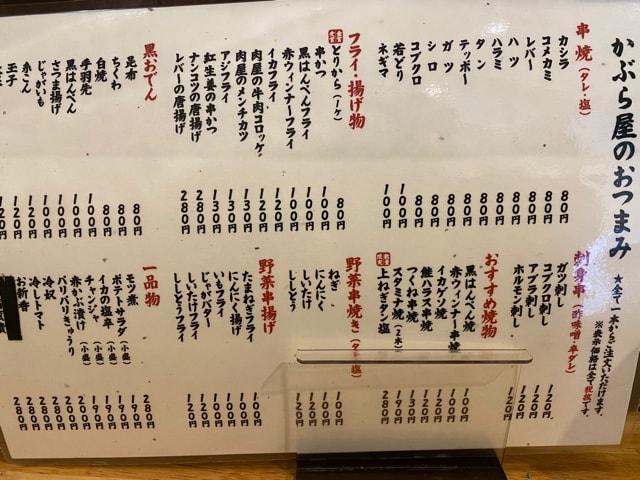 かぶら屋のおつまみ
★全て一本からご注文いただけます。
※表示価格は全て税抜です。
串焼（タレ・塩）
カシラ 80円
コメカミ 80円
レバー 80円
ハツ 80円
ハラミ 80円
タン 80円
テッポー 80円
ガツ 80円
シロ 80円
コブクロ 80円
若どり 100円
ネギマ 100円
フライ・揚げ物
とりから（一ケ） 80円
串かつ 100円
黒はんぺんフライ 100円
赤ウィンナーフライ 100円
イカフライ 120円
肉屋の牛肉コロッケ 120円
肉屋のメンチカツ 130円
アジフライ 130円
紅生姜の串かつ 130円
ナンコツの唐揚げ 280円
レバーの唐揚げ 280円
黒おでん
昆布 80円
ちくわ 80円
白焼 80円
手羽先 100円
黒はんぺん 100円
さつま揚げ 100円
じゃがいも 100円
糸こん 100円
玉子 120円
120円
刺身串（酢味噌・辛ダレ）
ガツ刺し 120円
コブクロ刺し 120円
アブラ刺し 120円
ホルモン刺し 120円
おすすめ焼物
黒はんぺん焼 100円
赤ウィンナー串焼 100円
イカゲソ焼
鮭ハラス串焼
つくね串焼 130円
スタミナ焼（2本） 190円
上ねぎタン塩 280円
野菜串焼き（タレ・塩）
ねぎ 100円
にんにく 100円
しいたけ 120円
ししとう 100円
野菜串揚げ
たまねぎフライ 100円
にんにく揚げ 100円
いもフライ 100円
じゃがバター 100円
しいたけフライ 120円
ししとうフライ 100円
一品物
モツ煮 280円
ポテトサラダ（小盛） 190円
イカの塩辛（小盛） 190円
チャンジャ（小盛） 190円
赤かぶ漬け（小盛） 200円
パリパリきゅうり 200円
冷奴 280円
冷しトマト 280円
お新香 280円